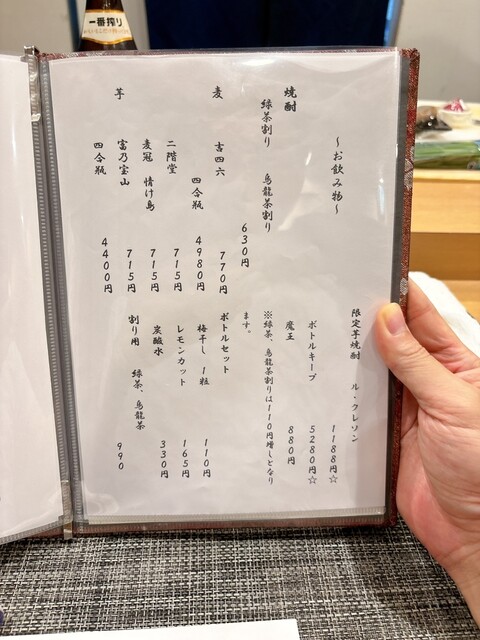 一番搾り
～お飲み物～
焼酎
緑茶割り 烏龍茶割り 630円
麦
吉四六 770円
四合瓶 4980円
二階堂 715円
麦冠 情け島 715円
芋
富乃宝山 715円
四合瓶 4400円
限定芋焼酎 ル・クレソン 1188円☆
ボトルキープ 5280円☆
魔王 880円
※緑茶、烏龍茶割りは110円増しとなり
ます。
ボトルセット
梅干し 1粒 110円
レモンカット 165円
炭酸水 330円
割り用 緑茶、烏龍茶 990